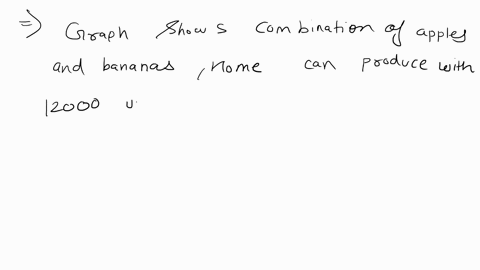 => Graph shows combination of apples
and bananas, Home can produce with
12000 u